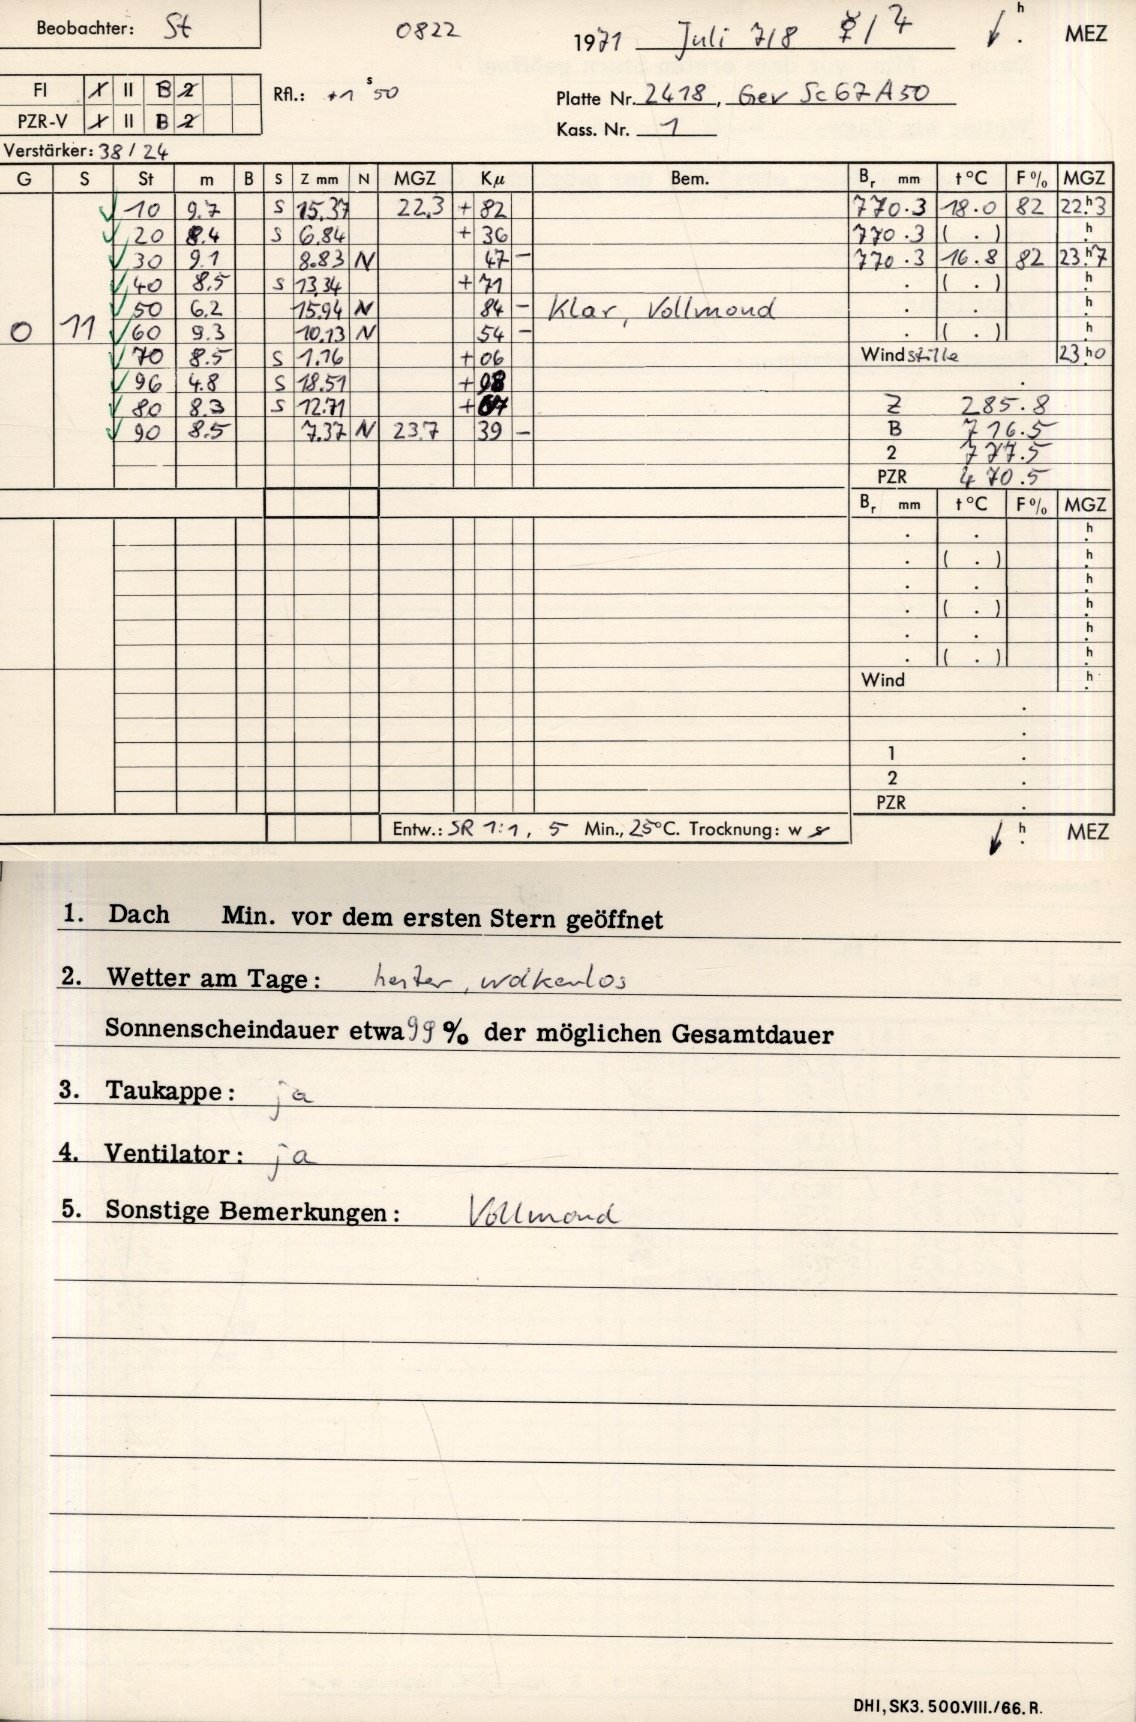 Beobachter: St
0822
1971 Juli 7/8 ☿/♃ h . MEZ
FI I II B 2
PZR-V I II B 2
Rfl.: +1 s 50
Platte Nr. 2418, Gev Sc67A50
Kass. Nr. 1
Verstärker: 38 / 24
G S St m B S Z mm N MGZ Kµ Bem. Br mm t°C F% MGZ
10 9.7 S 15.37 22.3 + 82 770.3 18.0 82 22.h3
20 8.4 S 6.84 + 36 770.3 ( . ) h.
30 9.1 8.83 N 47 - 770.3 16.8 82 23.h7
40 8.5 S 13.34 + 71 . ( . ) h.
50 6.2 15.94 N 84 - Klar, Vollmond . . h.
0 11 60 9.3 10.13 N 54 - . ( . ) h.
70 8.5 S 1.16 + 06 Windstille 23.h0
96 4.8 S 18.51 + 98 .
80 8.3 S 12.71 + 67 Z 285.8
90 8.5 7.37 N 23.7 39 - B 716.5
2 777.5
PZR 470.5
Br mm t°C F% MGZ
. . h.
. ( . ) h.
. . h.
. ( . ) h.
. . h.
. ( . ) h.
Wind h.
.
.
1 .
2 .
PZR .
Entw.: SR 1:1, 5 Min., 25°C. Trocknung: w
h . MEZ
1. Dach Min. vor dem ersten Stern geöffnet
2. Wetter am Tage: heiter, wolkenlos
Sonnenscheindauer etwa 99 % der möglichen Gesamtdauer
3. Taukappe: ja
4. Ventilator: ja
5. Sonstige Bemerkungen: Vollmond
DHI, SK3. 500.VIII./66. R.